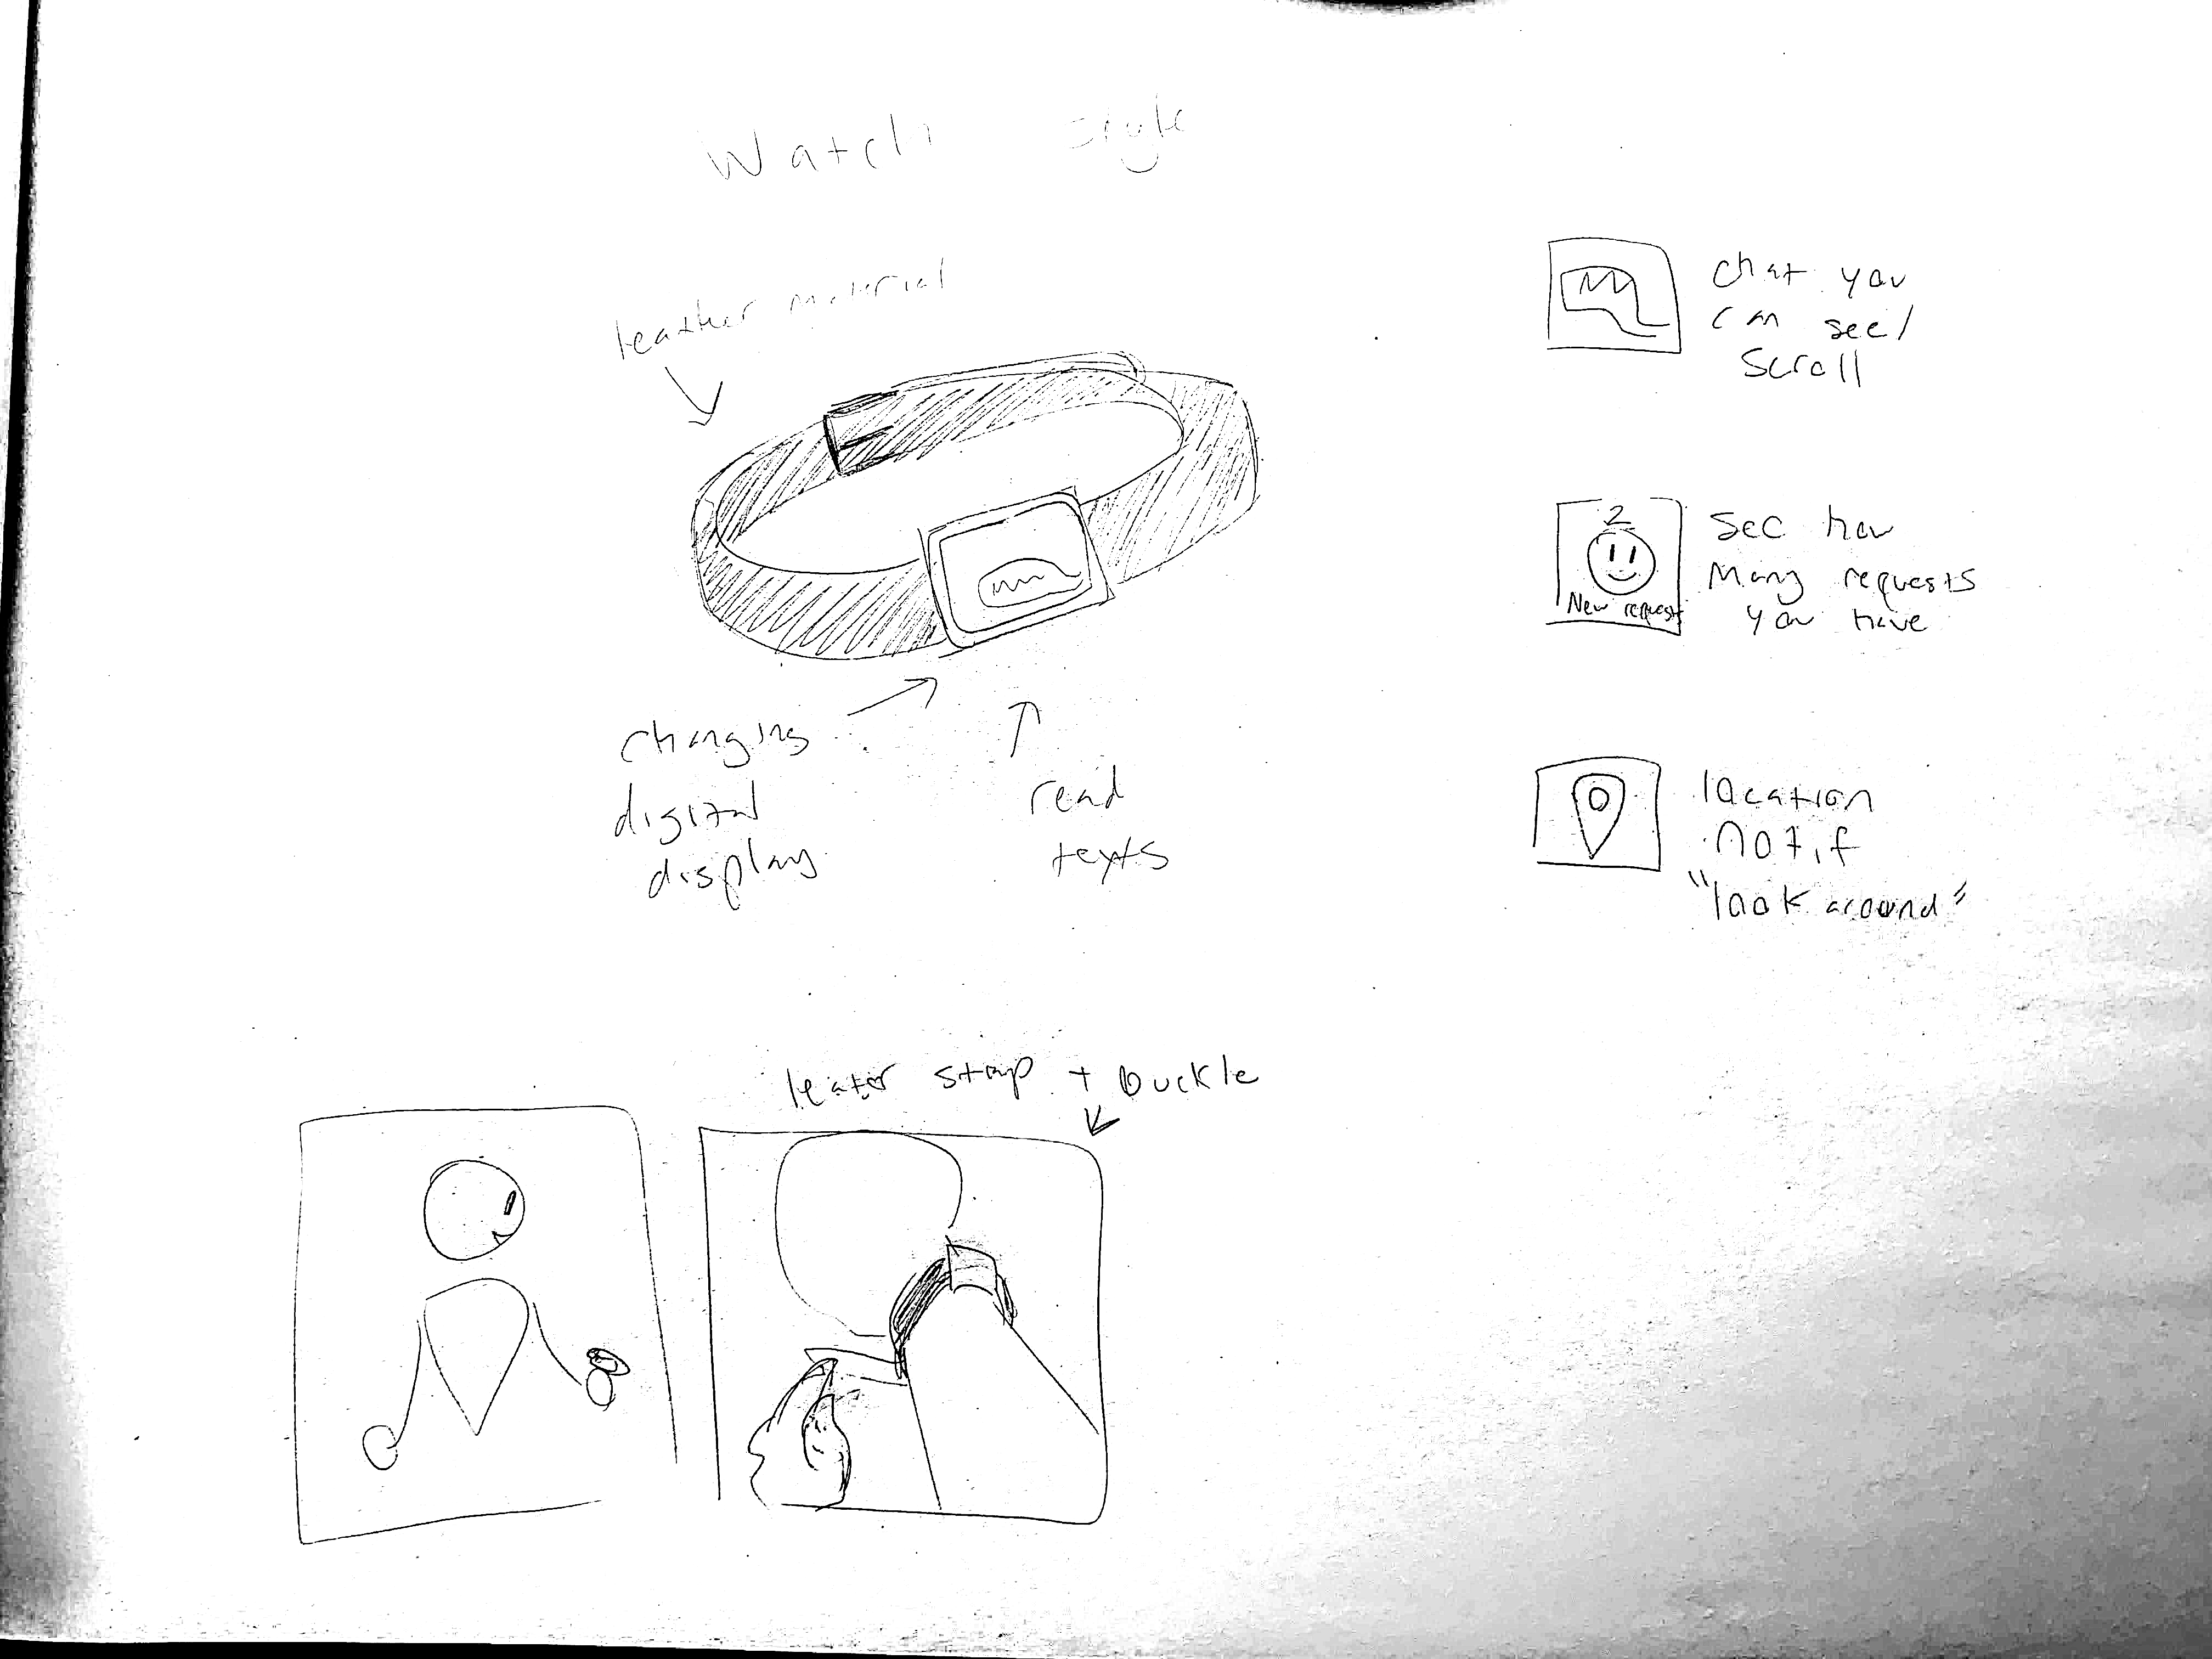 Watch Style
leather material
changing
digital
display
read
texts
chat you
can see/
scroll
2
New request
see how
Many requests
you have
location
notif
"look around"
leater strap + buckle